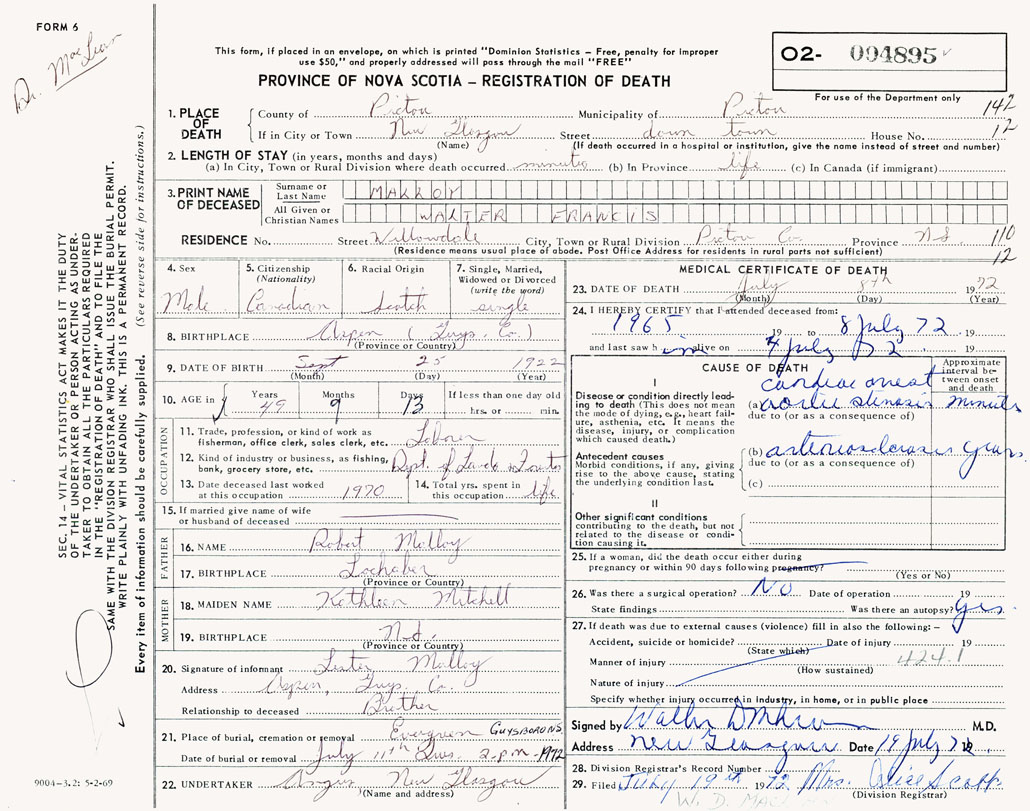 FORM 6
Dr. MacLean
This form, if placed in an envelope, on which is printed "Dominion Statistics – Free, penalty for improper
use $50," and properly addressed will pass through the mail "FREE"
PROVINCE OF NOVA SCOTIA – REGISTRATION OF DEATH
O2- 004895
For use of the Department only
142
12
1. PLACE OF DEATH
County of Pictou Municipality of Pictou
If in City or Town New Glasgow Street down town House No.
(Name) (If death occurred in a hospital or institution, give the name instead of street and number)
2. LENGTH OF STAY (in years, months and days)
(a) In City, Town or Rural Division where death occurred minutes (b) In Province life (c) In Canada (if immigrant)
3. PRINT NAME OF DECEASED
Surname or Last Name MALLOY
All Given or Christian Names WALTER FRANCIS
RESIDENCE No. Street Willowdale City, Town or Rural Division Pictou Co. Province N.S. 110
(Residence means usual place of abode. Post Office Address for residents in rural parts not sufficient) 12
4. Sex Male
5. Citizenship (Nationality) Canadian
6. Racial Origin Scotch
7. Single, Married, Widowed or Divorced (write the word) single
8. BIRTHPLACE Aspen (Guys. Co.)
(Province or Country)
9. DATE OF BIRTH Sept 25 1922
(Month) (Day) (Year)
10. AGE in Years 49 Months 9 Days 13 If less than one day old
hrs. or min.
OCCUPATION
11. Trade, profession, or kind of work as
fisherman, office clerk, sales clerk, etc. Laborer
12. Kind of industry or business, as fishing,
bank, grocery store, etc. Dept. of Lands & Forests
13. Date deceased last worked
at this occupation 1970
14. Total yrs. spent in
this occupation life
15. If married give name of wife
or husband of deceased
FATHER
16. NAME Robert Malloy
17. BIRTHPLACE Lochaber
(Province or Country)
MOTHER
18. MAIDEN NAME Kathleen Mitchell
19. BIRTHPLACE N.S.
(Province or Country)
20. Signature of informant Lester Malloy
Address Aspen, Guys. Co.
Relationship to deceased Brother
21. Place of burial, cremation or removal Evergreen GUYSBORO N.S.
Date of burial or removal July 11th Tues. 2 p.m. 1972
22. UNDERTAKER Angus New Glasgow
(Name and address)
MEDICAL CERTIFICATE OF DEATH
23. DATE OF DEATH July 8th 1972
(Month) (Day) (Year)
24. I HEREBY CERTIFY that I attended deceased from:
1965 19 to 8 July 72 19
and last saw him alive on 4 July 72 19
CAUSE OF DEATH
Approximate interval between onset and death
I
Disease or condition directly leading to death (This does not mean the mode of dying, e.g., heart failure, asthenia, etc. It means the disease, injury, or complication which caused death.)
cardiac arrest
(a) aortic stenosis minutes
due to (or as a consequence of)
Antecedent causes
Morbid conditions, if any, giving rise to the above cause, stating the underlying condition last.
(b) arteriosclerosis years
due to (or as a consequence of)
(c)
II
Other significant conditions
contributing to the death, but not related to the disease or condition causing it.
25. If a woman, did the death occur either during
pregnancy or within 90 days following pregnancy?
(Yes or No)
26. Was there a surgical operation? NO Date of operation 19
State findings Was there an autopsy? yes
27. If death was due to external causes (violence) fill in also the following: –
Accident, suicide or homicide? Date of injury 19
(State which)
Manner of injury 424.1
(How sustained)
Nature of injury
Specify whether injury occurred in industry, in home, or in public place
Signed by Walter M.D.
Address New Glasgow Date 19 July 72
28. Division Registrar's Record Number
29. Filed July 19th 1972 Mrs. Alice
(Division Registrar)
W. D. Mac
SEC. 14 – VITAL STATISTICS ACT MAKES IT THE DUTY
OF THE UNDERTAKER OR PERSON ACTING AS UNDER-
TAKER TO OBTAIN ALL THE PARTICULARS REQUIRED
IN THE "REGISTRATION OF DEATH" AND TO FILE THE
SAME WITH THE DIVISION REGISTRAR WHO SHALL ISSUE THE BURIAL PERMIT.
WRITE PLAINLY WITH UNFADING INK. THIS IS A PERMANENT RECORD.
Every item of information should be carefully supplied. (See reverse side for instructions.)
9004-3.2: 5-2-69